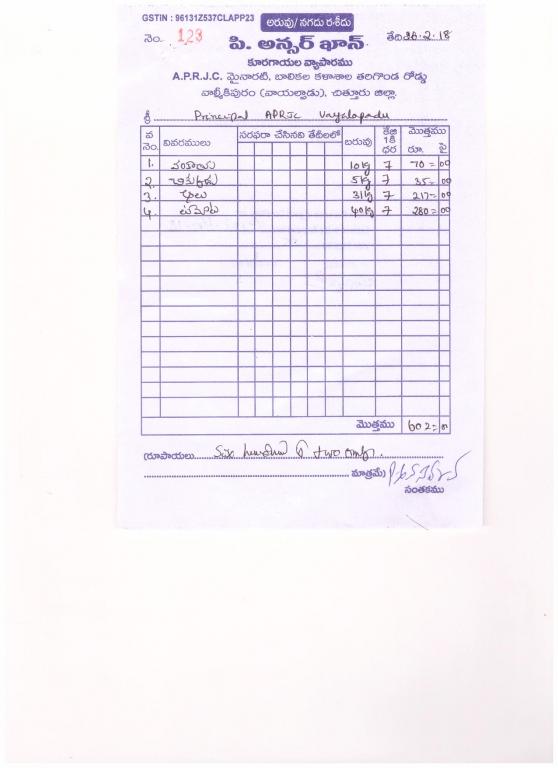 GSTIN : 96131Z537CLAPP23
అరువు/ నగదు రశీదు
నెం. 123
తేది 26.2.18
పి. అన్సర్ ఖాన్
కూరగాయల వ్యాపారము
A.P.R.J.C. మైనారటీ, బాలికల కళాశాల తరిగొండ రోడ్డు
వాల్మీకిపురం (వాయల్పాడు), చిత్తూరు జిల్లా.
శ్రీ Principal APRJC Vayalapadu
వ నెం. వివరములు సరఫరా చేసినవి తేదీలలో బరువు కేజి 1కి ధర మొత్తము రూ. పై
1. వంకాయ 10 kg 7 70 = 00
2. చిక్కుడు 5 kg 7 35 = 00
3. 31 kg 7 217 = 00
4. టమోట 40 kg 7 280 = 00
మొత్తము 602 = 00
(రూపాయలు Six hundred & two only.
మాత్రమే)
సంతకము